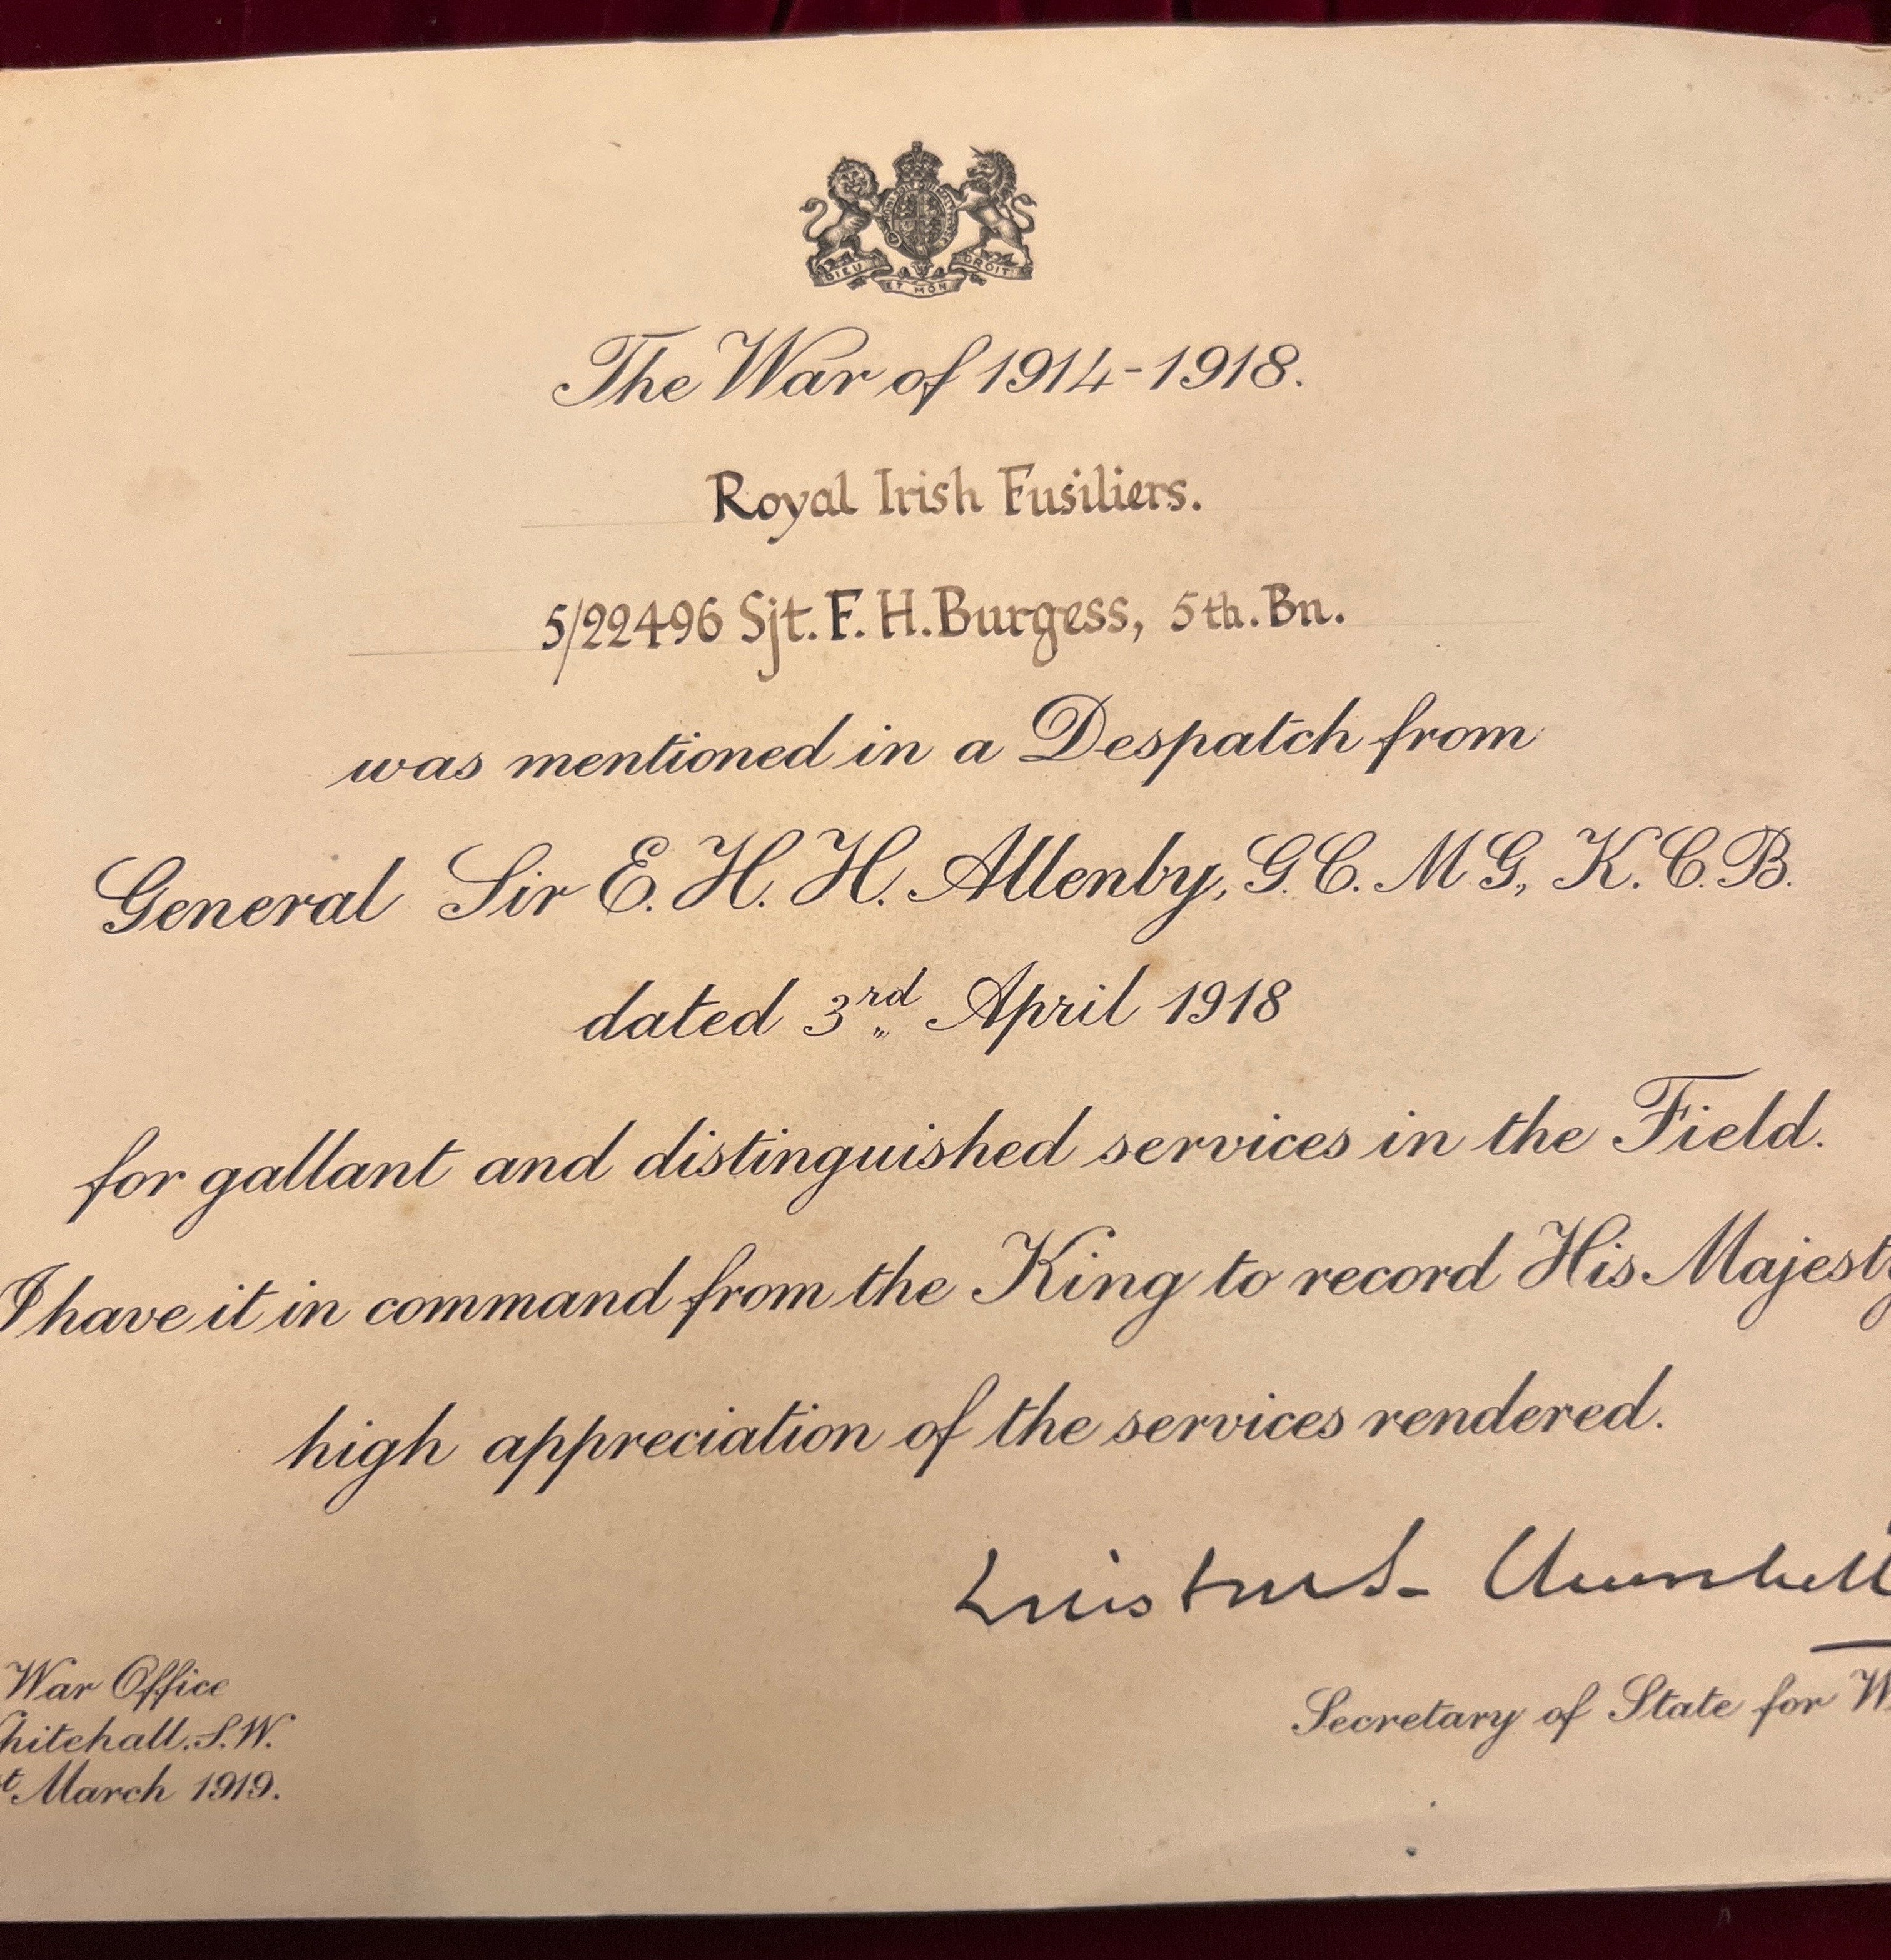 DIEU ET MON DROIT
The War of 1914-1918.
Royal Irish Fusiliers.
5/22496 Sjt. F. H. Burgess, 5th. Bn.
was mentioned in a Despatch from
General Sir E. H. H. Allenby, G.C.M.G., K.C.B.
dated 3rd April 1918
for gallant and distinguished services in the Field.
I have it in command from the King to record His Majesty
high appreciation of the services rendered.
Winston S. Churchill
War Office
Whitehall. S.W.
st March 1919.
Secretary of State for W